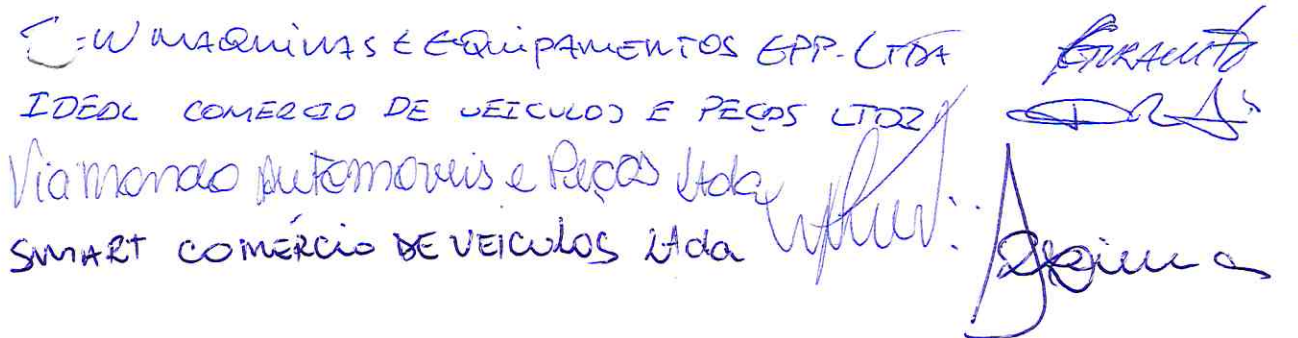 MAQUINAS E EQUIPAMENTOS EPP. LTDA
IDEAL COMERCIO DE VEICULOS E PEÇAS LTDA
Viamondo Automoveis e Peças Ltda
SMART COMÉRCIO DE VEICULOS Ltda